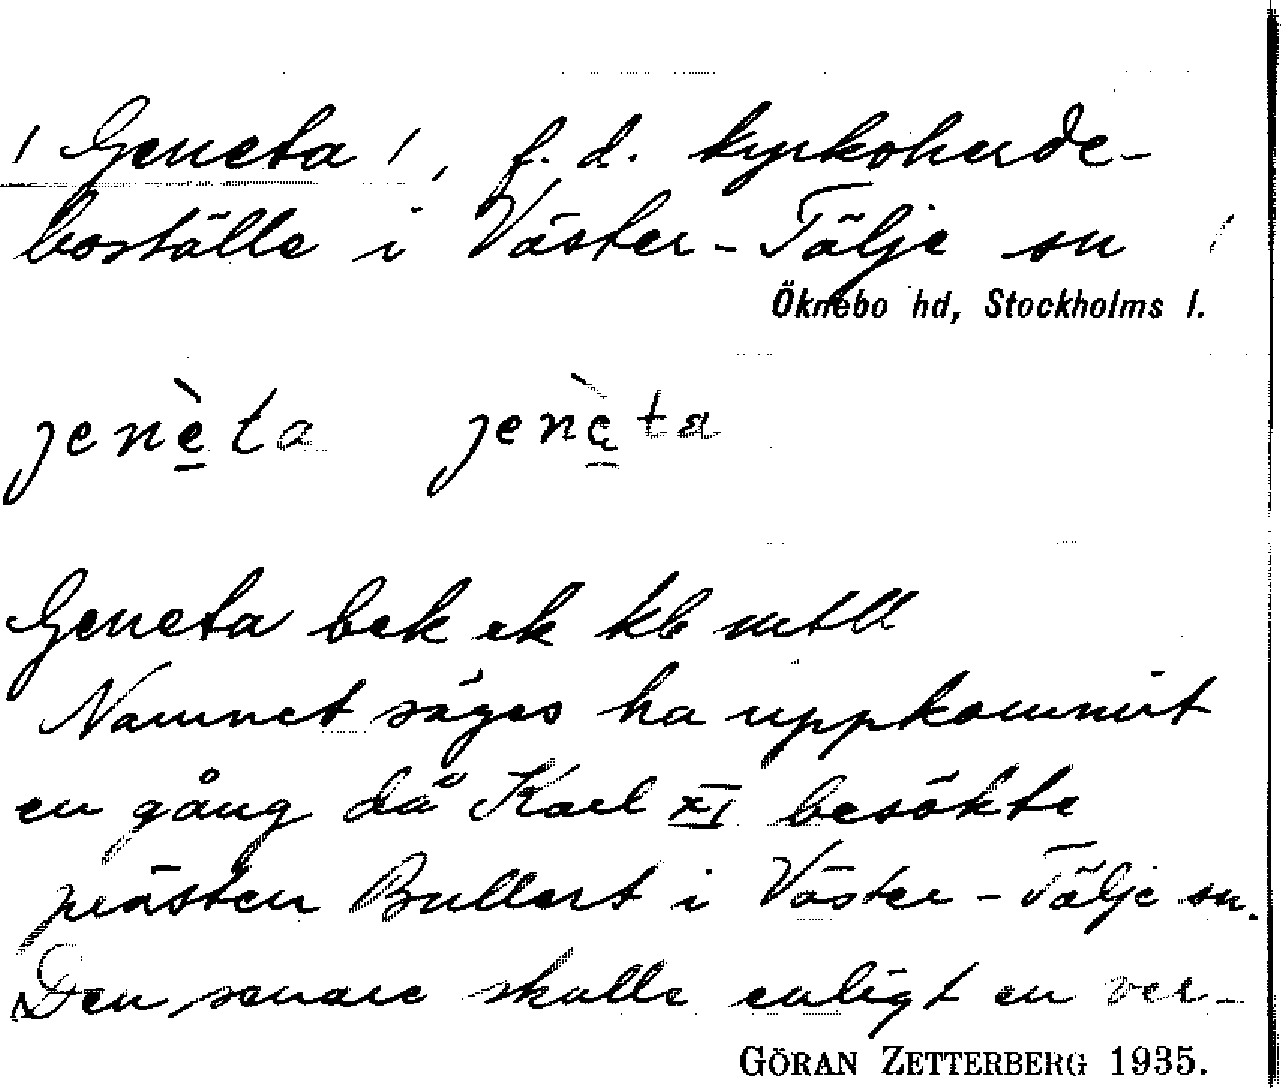 ! Geneta !, f. d. kyrkoherde-
boställe i Väster-Tälje sn
Öknebo hd, Stockholms l.
jenè̱ta jenè̱ta
Geneta bek ek kb mtll
Namnet säges ha uppkommit
en gång då Karl XI besökte
prästen Bullert i Väster-Tälje sn.
Den senare skulle enligt en ver-
GÖRAN ZETTERBERG 1935.